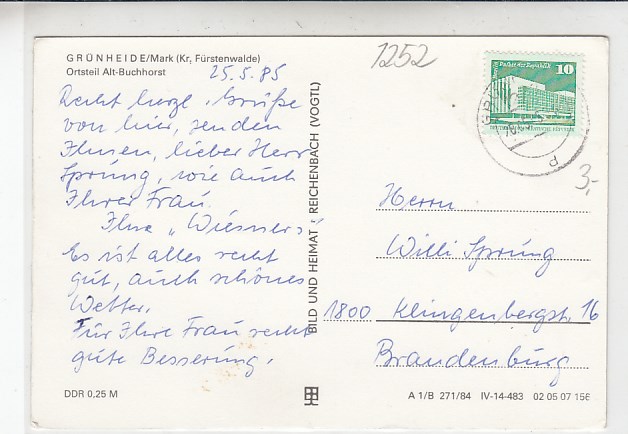 GRÜNHEIDE/Mark (Kr. Fürstenwalde)
Ortsteil Alt-Buchhorst
25.5.85
Recht herzl. Grüße
von hier, senden
Ihnen, lieber Herr
Sprung, wie auch
Ihrer Frau.
Ihre „Wiesners"
Es ist alles recht
gut, auch schönes
Wetter.
Für Ihre Frau recht
gute Besserung.
DDR 0,25 M
BILD UND HEIMAT REICHENBACH (VOGTL)
1252
Palast der Republik
10
3,-
Herrn
Willi Sprung
1800 Klingenbergst. 16
Brandenburg
A 1/B 271/84 IV-14-483 02 05 07 156